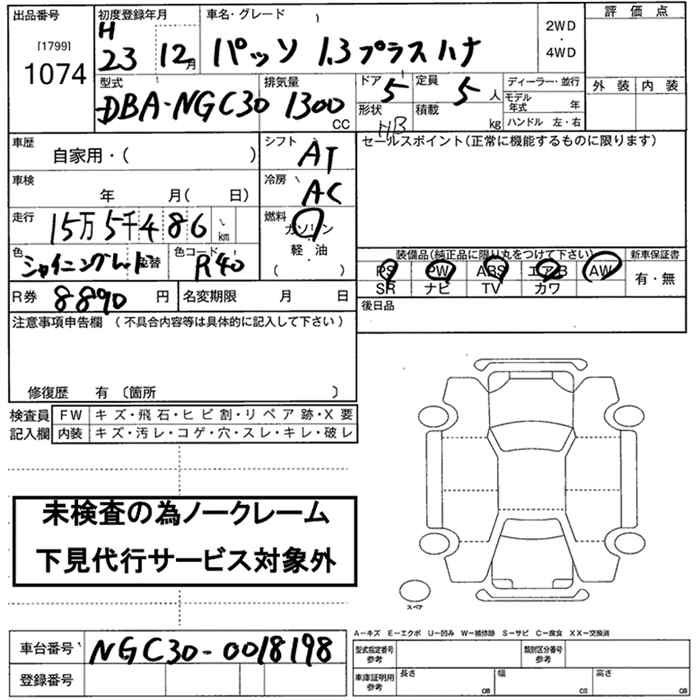 出品番号 初度登録年月 車名・グレード 評価点
[1799] 1074 H 23 12月 パッソ 1.3プラスハナ 2WD・4WD
外装 内装
型式 排気量 ドア 定員 ディーラー・並行
DBA-NGC30 1300 CC 5 5人 モデル年式 年
形状 HB 積載 kg ハンドル 左・右
車歴 シフト セールスポイント(正常に機能するものに限ります)
自家用・( ) AT
車検 冷房
年 月( 日) AC
走行 燃料
15万5千486 km ガソリン
色 色コード 軽油 装備品(純正品に限り丸をつけて下さい) 新車保証書
シャイニングレッド 替 R40 ( ) PS PW ABS エアB AW 有・無
SR ナビ TV カワ
R券 8890円 名変期限 月 日 後日品
注意事項申告欄(不具合内容等は具体的に記入して下さい)
修復歴 有〔箇所 〕
検査員 FW キズ・飛石・ヒビ割・リペア跡・X要
記入欄 内装 キズ・汚レ・コゲ・穴・スレ・キレ・破レ
未検査の為ノークレーム
下見代行サービス対象外
スペア
A－キズ E－エクボ U－凹み W－補修跡 S－サビ C－腐食 XX－交換済
車台番号 NGC30-0018198 型式指定番号 参考 類別区分番号 参考
登録番号 車庫証明用 参考 長さ cm 幅 cm 高さ cm